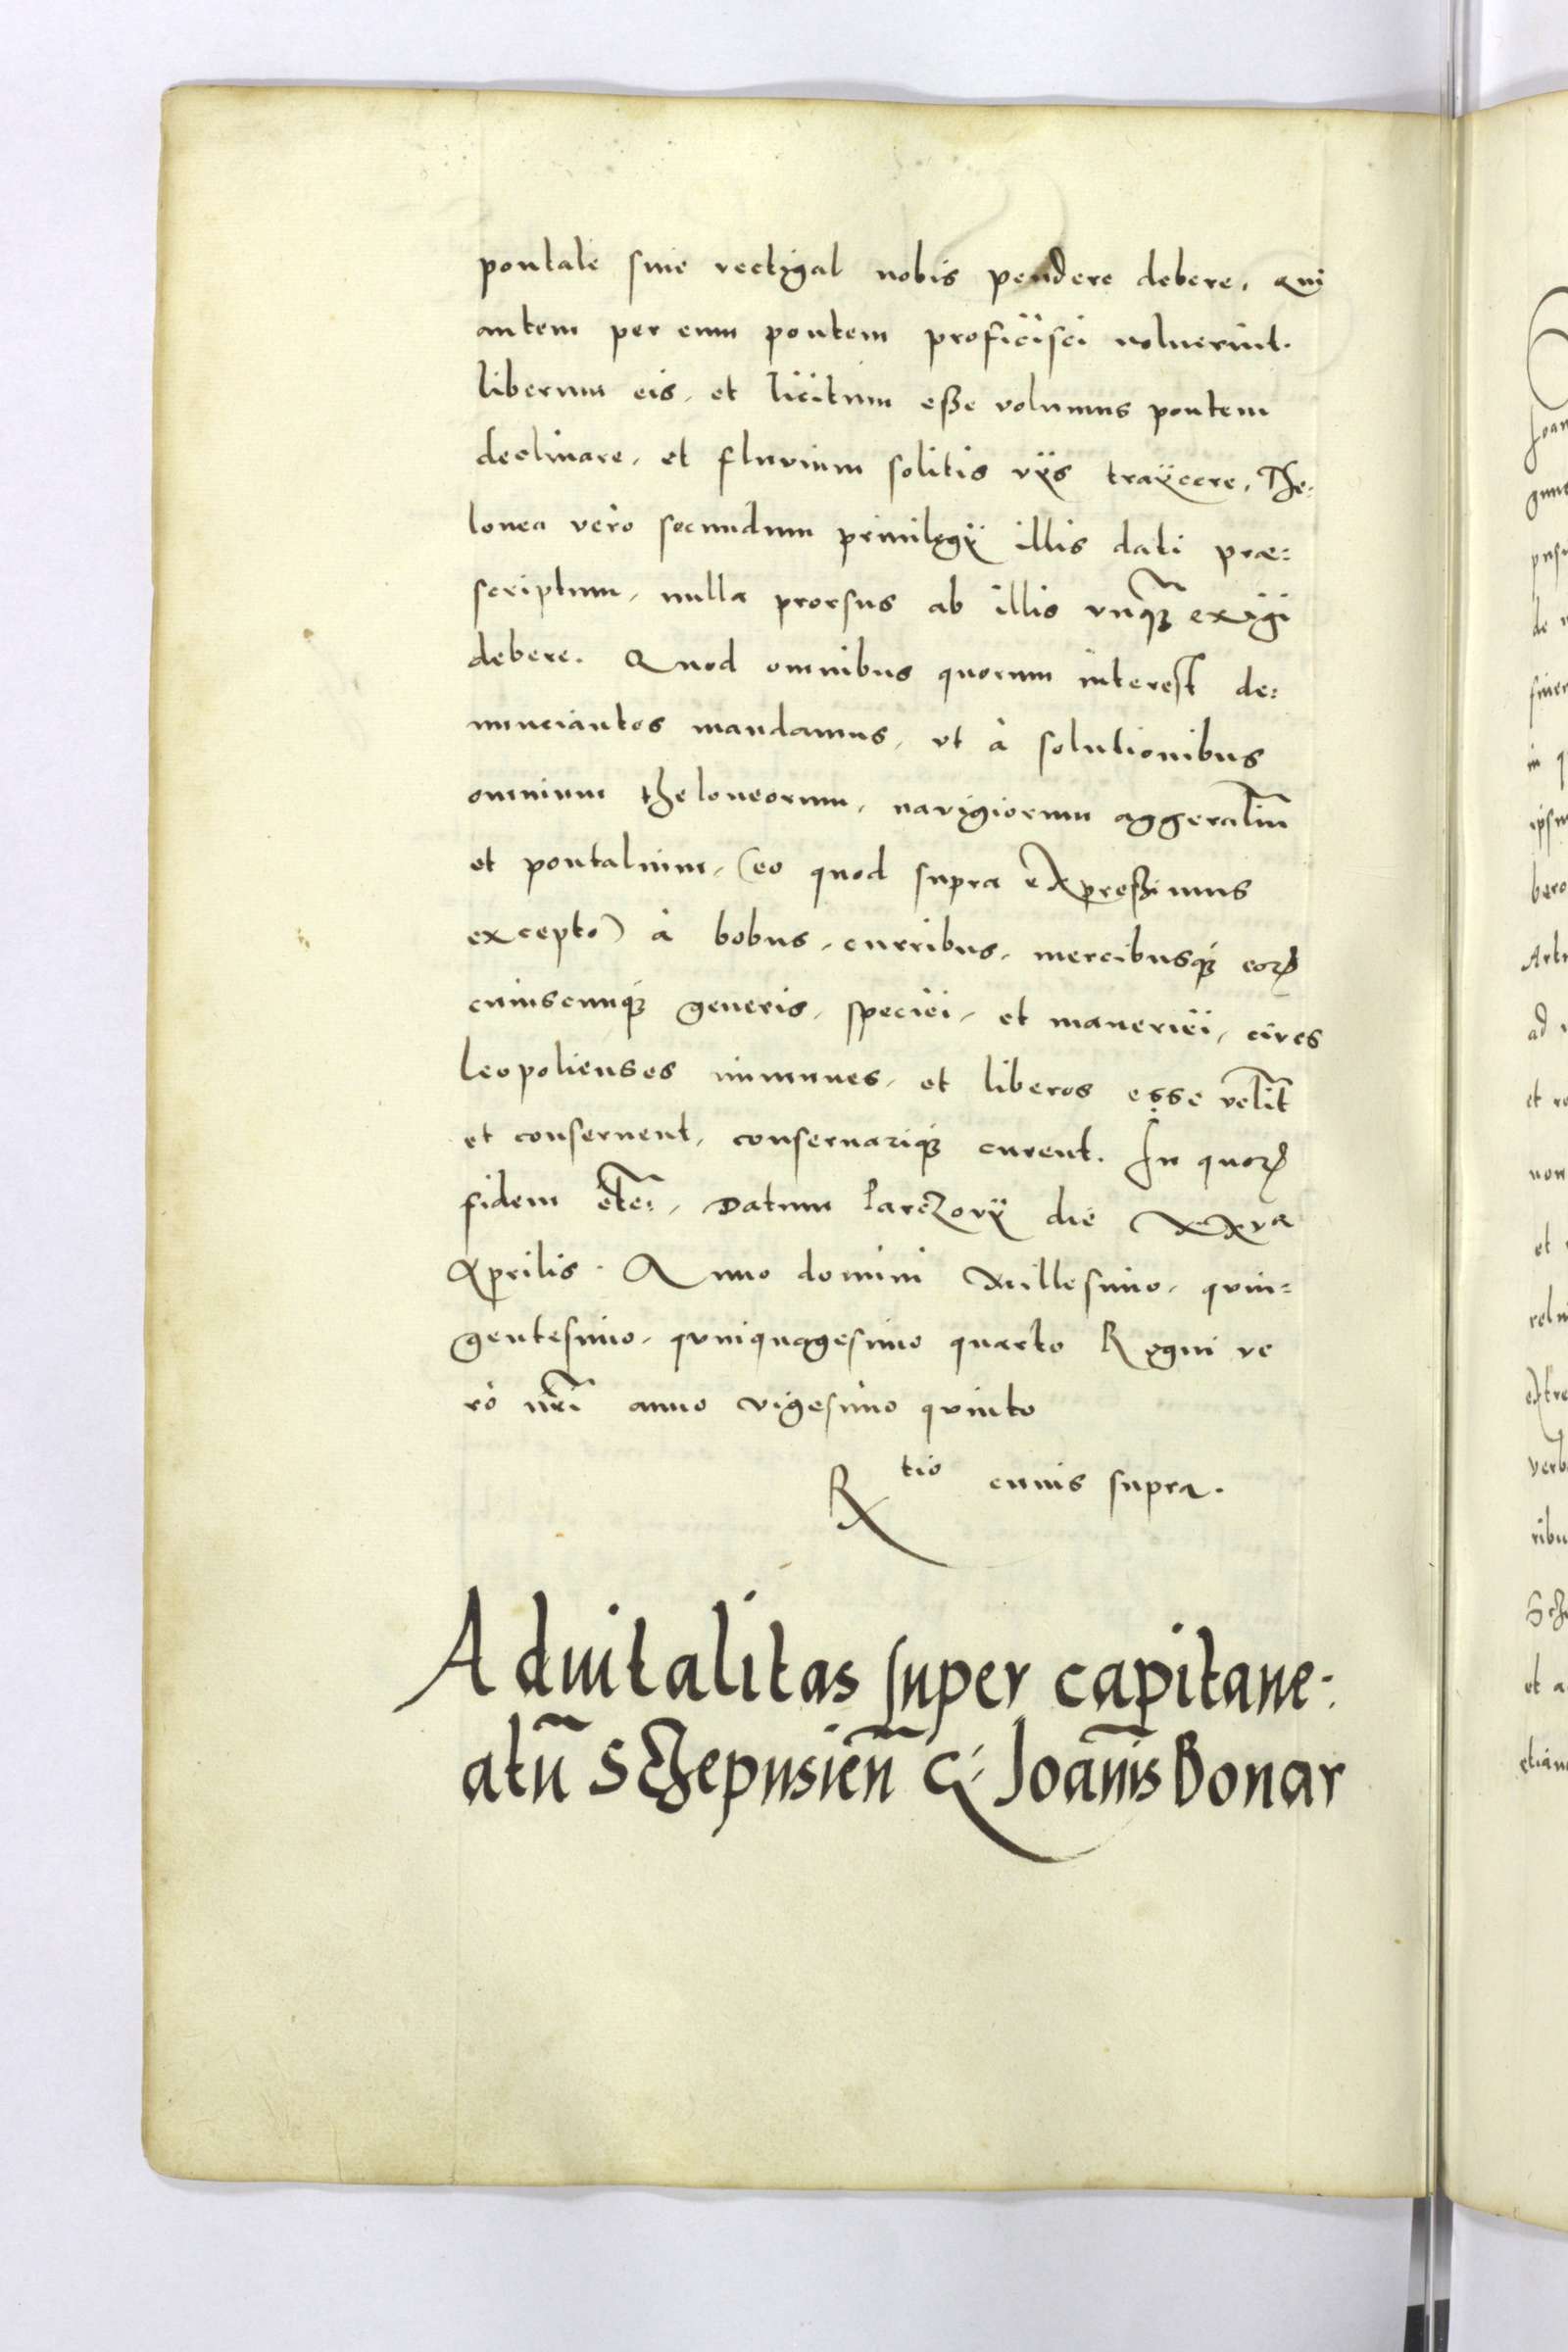 pontale siue vectigal nobis pendere debere, Qui
autem per eum pontem proficisci noluerint.
liberum eis, et licitum esse volumus pontem
declinare, et fluvium solitis vÿs traÿcere, The:
lonea vero secundum priuilegÿ illis dati præ:
scriptum, nulla prorsus ab illis vnq̃ꝫ exigi
debere. Quod omnibus quorum interest de:
nunciantes mandamus, vt à solutionibus
omnium theloneorum, navigiorum aggeraliũ
et pontalium, (eo quod supra expressimus
excepto) à bobus, curribus, mercibusqꝫ eoꝝ
cuiuscunqꝫ generis, speciei, et maneriei, cives
Leopolienses immunes, et liberos esse velĩt
et conseruent, conseruariqꝫ curent. In quoꝝ
fidem etc̃:, Datum Parczovÿ die xxva
Aprilis. Anno domini Millesimo, quin=
gentesimo, quinquagesimo quarto Regni ve
rò nr̃i anno vigesimo quinto
Rtio cuius supra.
Aduitalitas super capitane:
atũ Schepusieñ G: Joañis Bonar